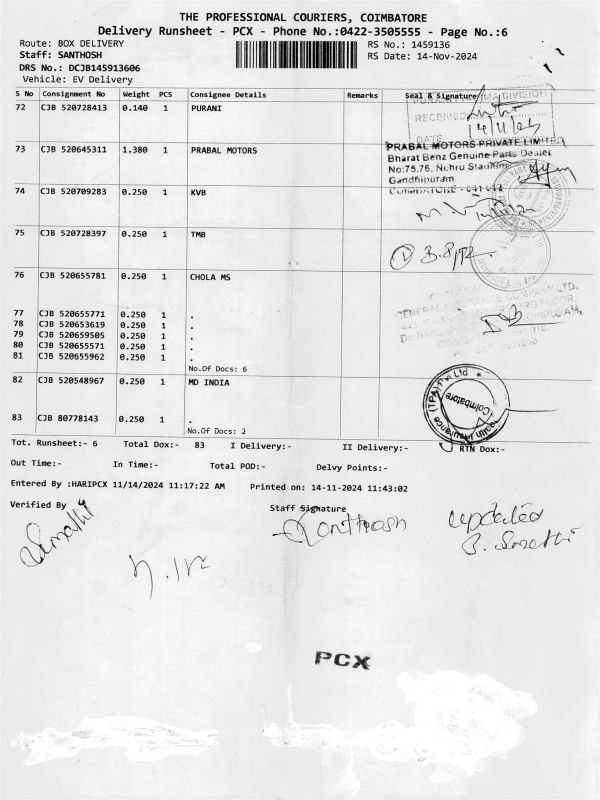 THE PROFESSIONAL COURIERS, COIMBATORE
Delivery Runsheet - PCX - Phone No.:0422-3505555 - Page No.:6
Route: BOX DELIVERY RS No.: 1459136
Staff: SANTHOSH RS Date: 14-Nov-2024
DRS No.: DCJB145913606
Vehicle: EV Delivery
S No Consignment No Weight PCS Consignee Details Remarks Seal & Signature
72 CJB 520728413 0.140 1 PURANI
DIVISION
RECEIVED
DATE 14/11/24
73 CJB 520645311 1.380 1 PRABAL MOTORS
PRABAL MOTORS PRIVATE LIMITED
Bharat Benz Genuine Parts Dealer
No:75,76, Nehru Stadium,
Gandhipuram
COIMBATORE - 641 012
74 CJB 520709283 0.250 1 KVB
75 CJB 520728397 0.250 1 TMB
76 CJB 520655781 0.250 1 CHOLA MS
77 CJB 520655771 0.250 1 .
78 CJB 520653619 0.250 1 .
79 CJB 520659505 0.250 1 .
80 CJB 520655571 0.250 1 .
81 CJB 520655962 0.250 1 .
No.Of Docs: 6
82 CJB 520548967 0.250 1 MD INDIA
Health Insurance (TPA) Pvt Ltd
Coimbatore
83 CJB 80778143 0.250 1 .
No.Of Docs: 2
Tot. Runsheet:- 6 Total Dox:- 83 I Delivery:- II Delivery:- RTN Dox:-
Out Time:- In Time:- Total POD:- Delvy Points:-
Entered By :HARIPCX 11/14/2024 11:17:22 AM Printed on: 14-11-2024 11:43:02
Verified By Staff Signature
Santhosh
updated
PCX